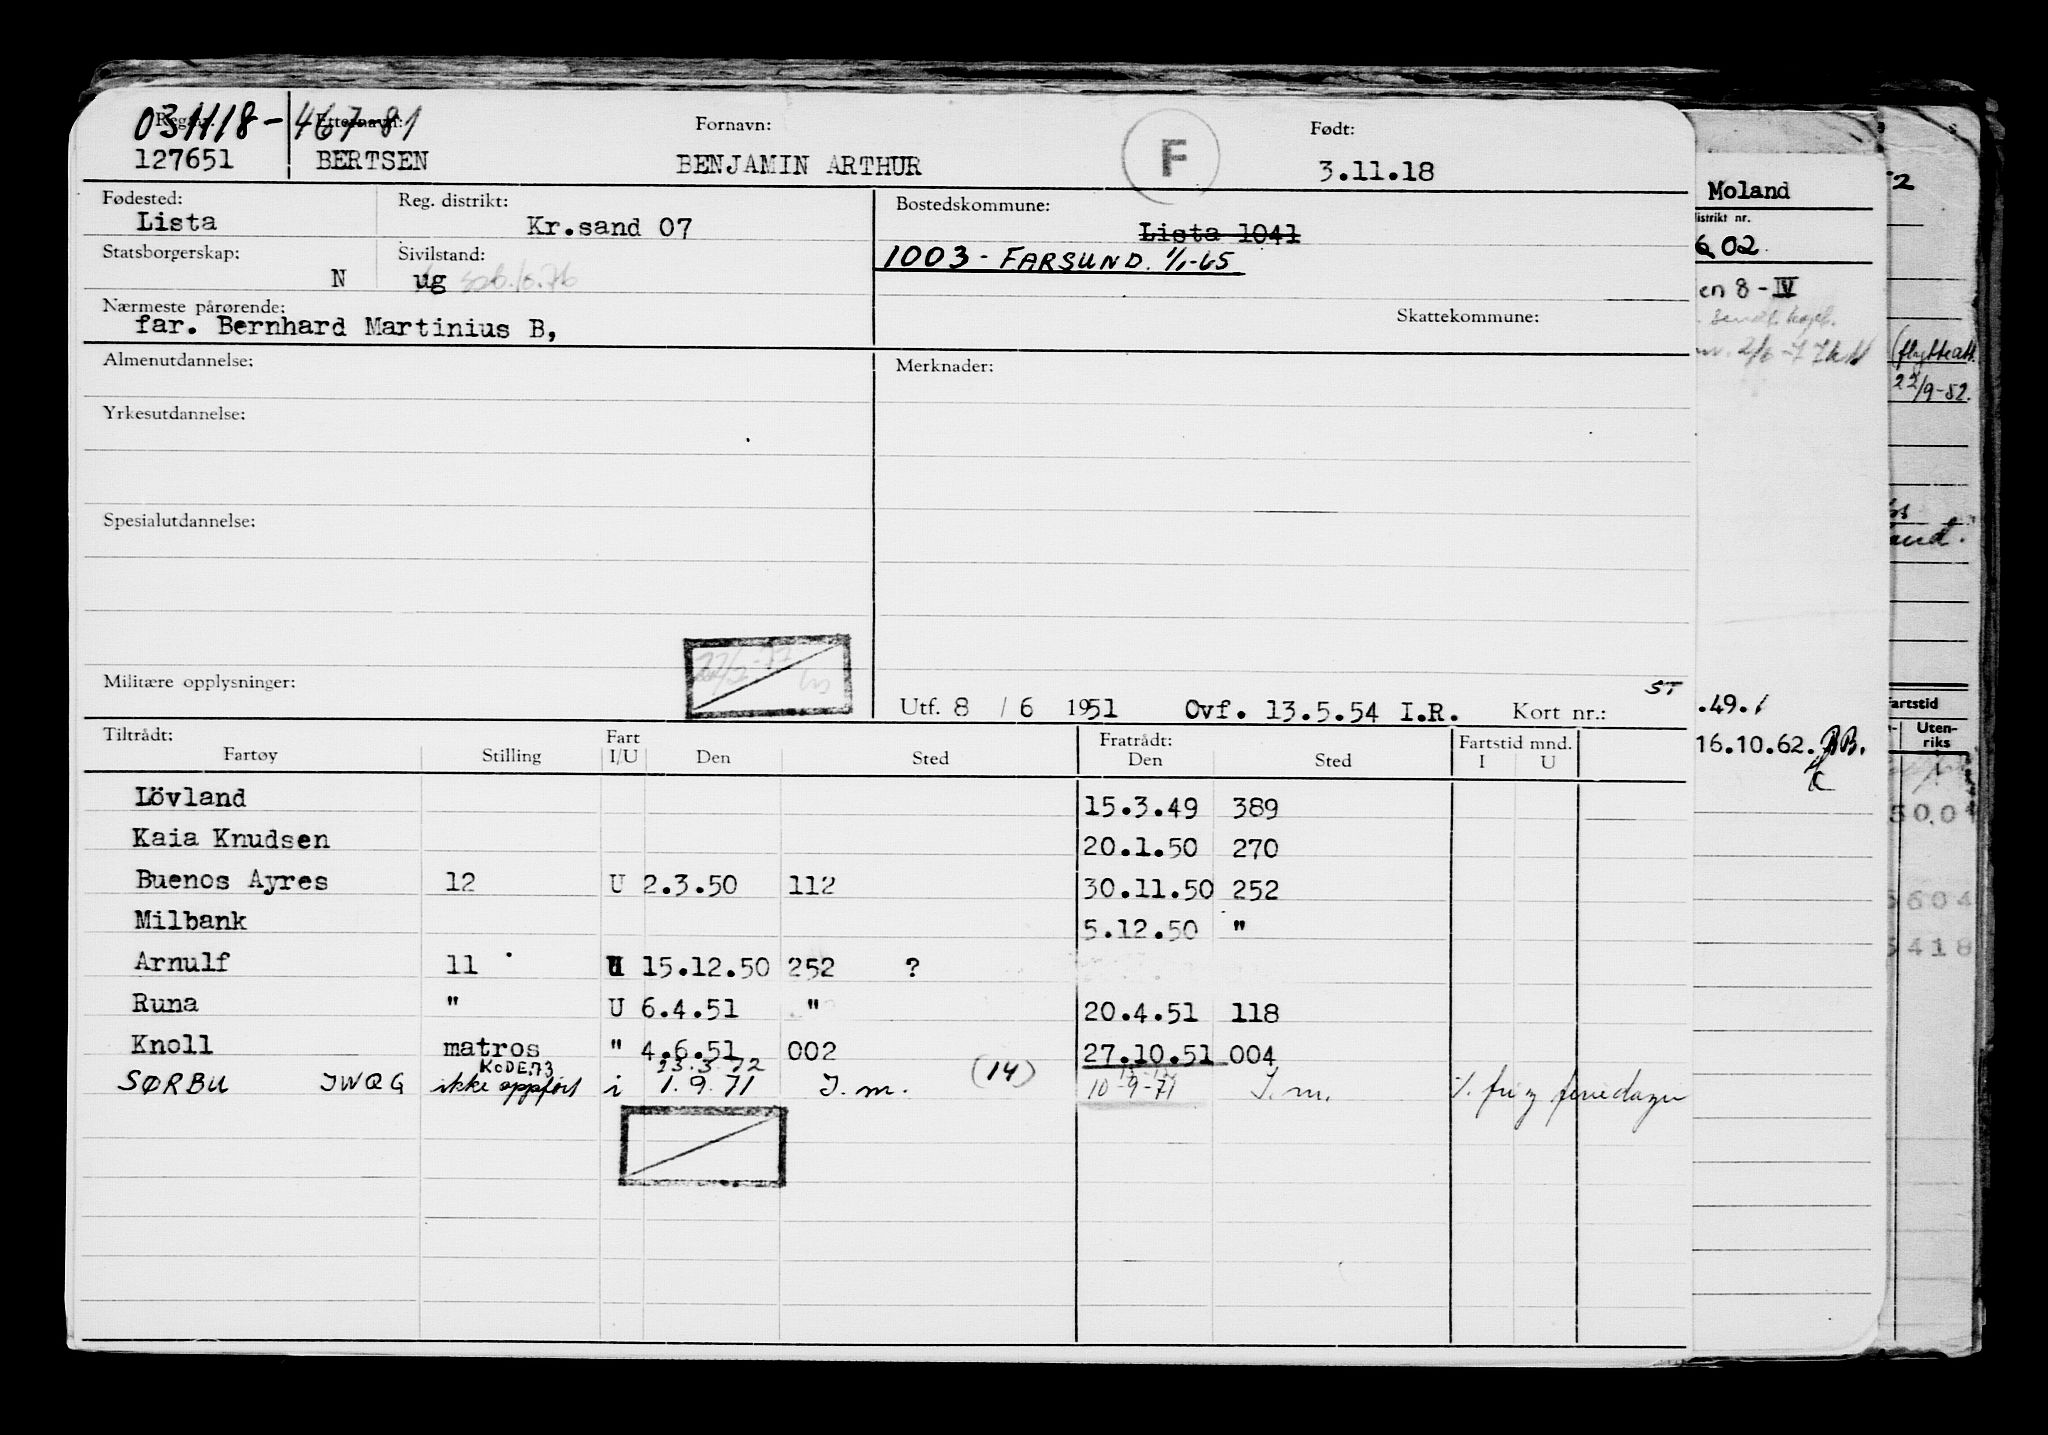 031118-46781
Reg. nr. Etternavn: Fornavn: F Født:
127651 BERTSEN BENJAMIN ARTHUR 3.11.18
Fødested: Reg. distrikt: Bostedskommune:
Lista Kr.sand 07 Lista 1041
Statsborgerskap: Sivilstand: 1003 - FARSUND. 1/1-65
N ug
Nærmeste pårørende: Skattekommune:
far. Bernhard Martinius B,
Almenutdannelse: Merknader:
Yrkesutdannelse:
Spesialutdannelse:
Militære opplysninger:
ST
Utf. 8 / 6 1951 Ovf. 13.5.54 I.R. Kort nr.:
Tiltrådt: Fart Fratrådt: Fartstid mnd.
Fartøy Stilling I/U Den Sted Den Sted I U
Lövland 15.3.49 389
Kaia Knudsen 20.1.50 270
Buenos Ayres 12 U 2.3.50 112 30.11.50 252
Milbank 5.12.50 "
Arnulf 11 U 15.12.50 252 ?
Runa " U 6.4.51 " 20.4.51 118
Knoll matros " 4.6.51 002 27.10.51 004
KODE.73 23.3.72
SØRBU JWQG ikke oppført i 1.9.71 I.m. (14) 10-9-71 I.m. %. fri og feriedager
Moland
distrikt nr.
02
en 8 - IV
2/6-77
.49.
16.10.62.
2
(flytteatt.
22/9-52.
and.
artstid
Uten-
riks
5004
6604
5418